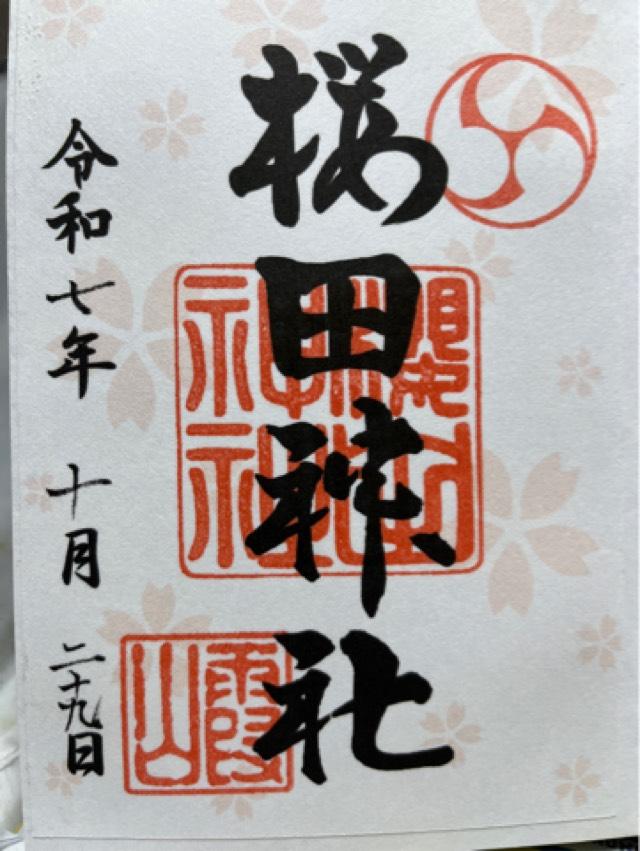 桜田神社
令和七年 十月 二十九日
霞山